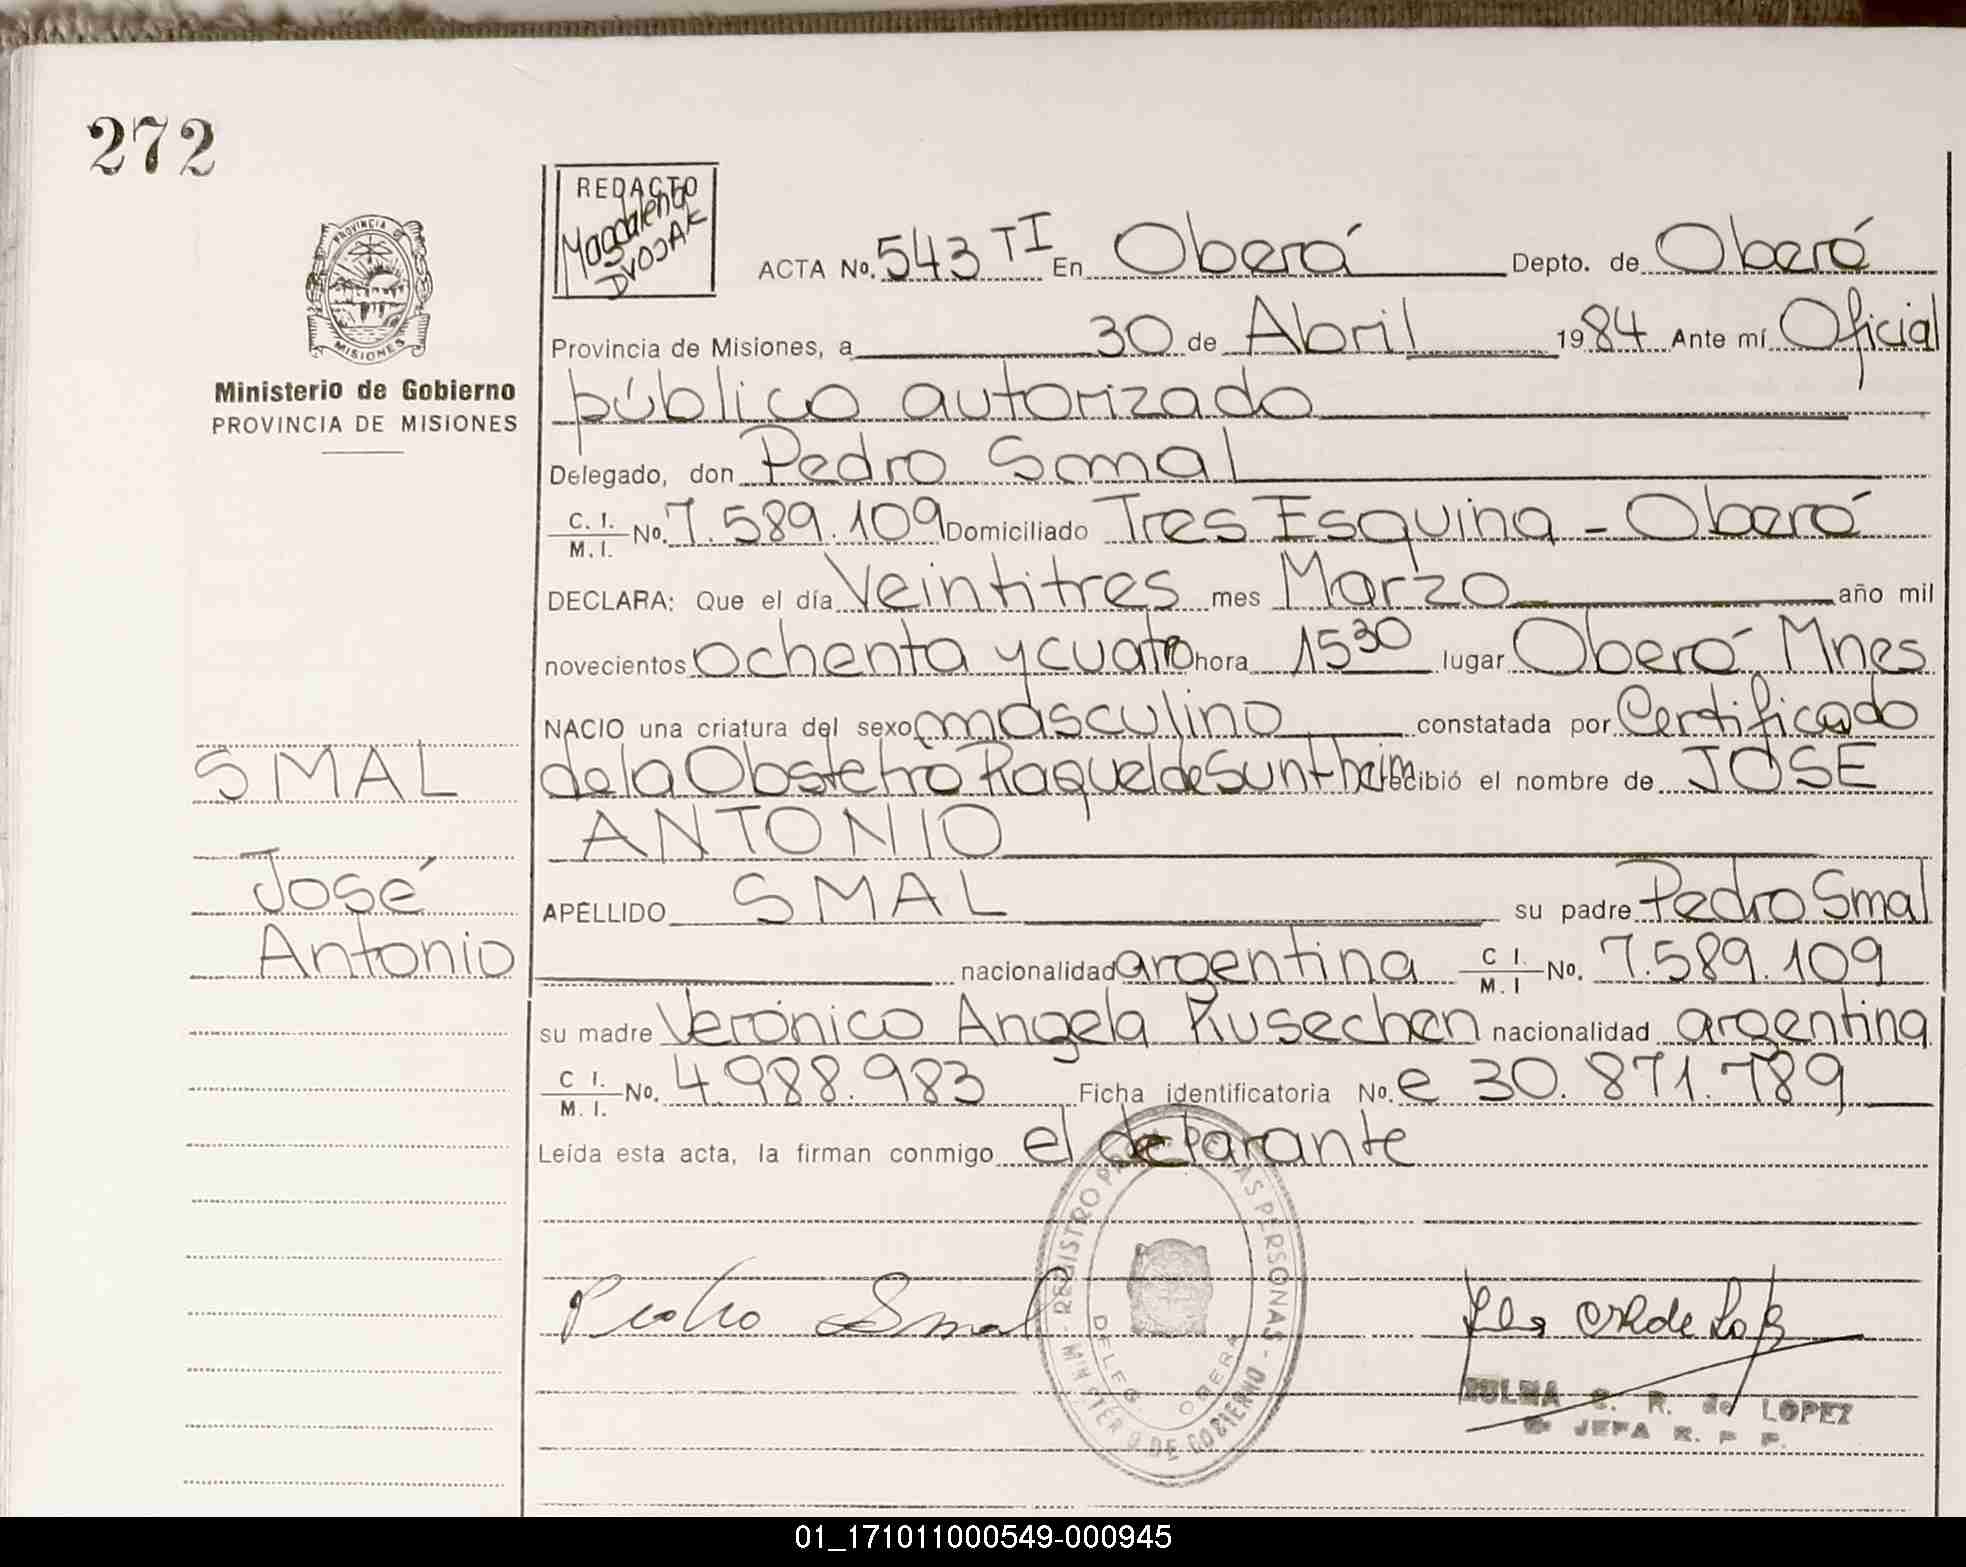 272
REDACTO
Magdalena
DVOJAK
PROVINCIA DE
MISIONES
Ministerio de Gobierno
PROVINCIA DE MISIONES
ACTA No. 543 TI En Oberá Depto. de Oberá
Provincia de Misiones, a 30 de Abril 1984 Ante mí Oficial
público autorizado
Delegado, don Pedro Smal
C. I. M. I. No. 7.589.109 Domiciliado Tres Esquina - Oberá
DECLARA: Que el día Veintitres mes Marzo año mil
novecientos ochenta y cuatro hora 15 30 lugar Oberá Mnes
NACIO una criatura del sexo masculino constatada por Certificado
de la Obstetra Raquel de Suntheim recibió el nombre de JOSE
ANTONIO
APELLIDO SMAL su padre Pedro Smal
nacionalidad argentina C I. M. I No. 7.589.109
su madre Verónica Angela Rusechen nacionalidad argentina
C I. M. I. No. 4.988.983 Ficha identificatoria No. e 30.871.789
Leída esta acta, la firman conmigo el declarante
SMAL
José
Antonio
Pedro Smal
REGISTRO PERSONAS - MINISTERIO DE GOBIERNO
DELEG. OBERA
C. R. de LOPEZ
JEFA R. P. P.
01_171011000549-000945